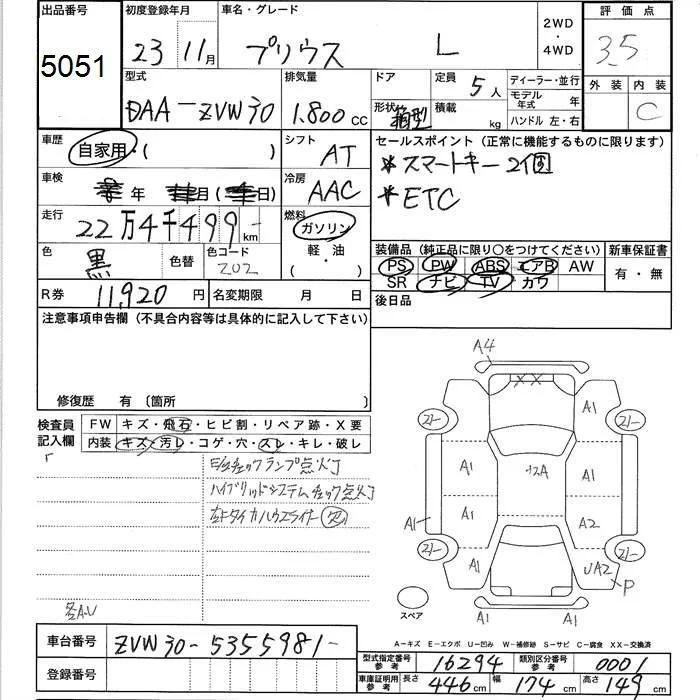 出品番号 初度登録年月 車名・グレード 2WD・4WD 評価点
5051 23 11月 プリウス L 3.5
外装 内装
C
型式 排気量 ドア 定員 5人 ディーラー・並行
DAA-ZVW30 1.800cc 形状 箱型 積載 kg モデル年式 年
ハンドル 左・右
車歴 自家用・( ) シフト AT
セールスポイント(正常に機能するものに限ります)
*スマートキー2個
*ETC
車検 年 月(日) 冷房 AAC
走行 22万4千499-km 燃料 ガソリン
軽・油
( )
色 黒 色替 色コード 202
装備品(純正品に限り○をつけてください) 新車保証書
PS PW ABS エアB AW 有・無
SR ナビ TV カワ
R券 11,920円 名変期限 月 日
後日品
注意事項申告欄(不具合内容等は具体的に記入して下さい)
修復歴 有〔箇所
検査員記入欄 FW キズ・飛石・ヒビ割・リペア跡・X要
内装 キズ・汚レ・コゲ・穴・スレ・キレ・破レ
チェックランプ点灯
ハイブリッドシステムチェック点灯
左Fタイヤハウスライナー 欠
各A.U
A4
XX
A1
A1 A1
A1 A1 A2
A1 UA2
P
A1 A1
スペア
A-キズ E-エクボ U-凹み W-補修跡 S-サビ C-腐食 XX-交換済
車台番号 ZVW30-5355981-
登録番号
型式指定番号参考 16294 類別区分番号参考 0001
車庫証明用参考 長さ 446cm 幅 174cm 高さ 149cm